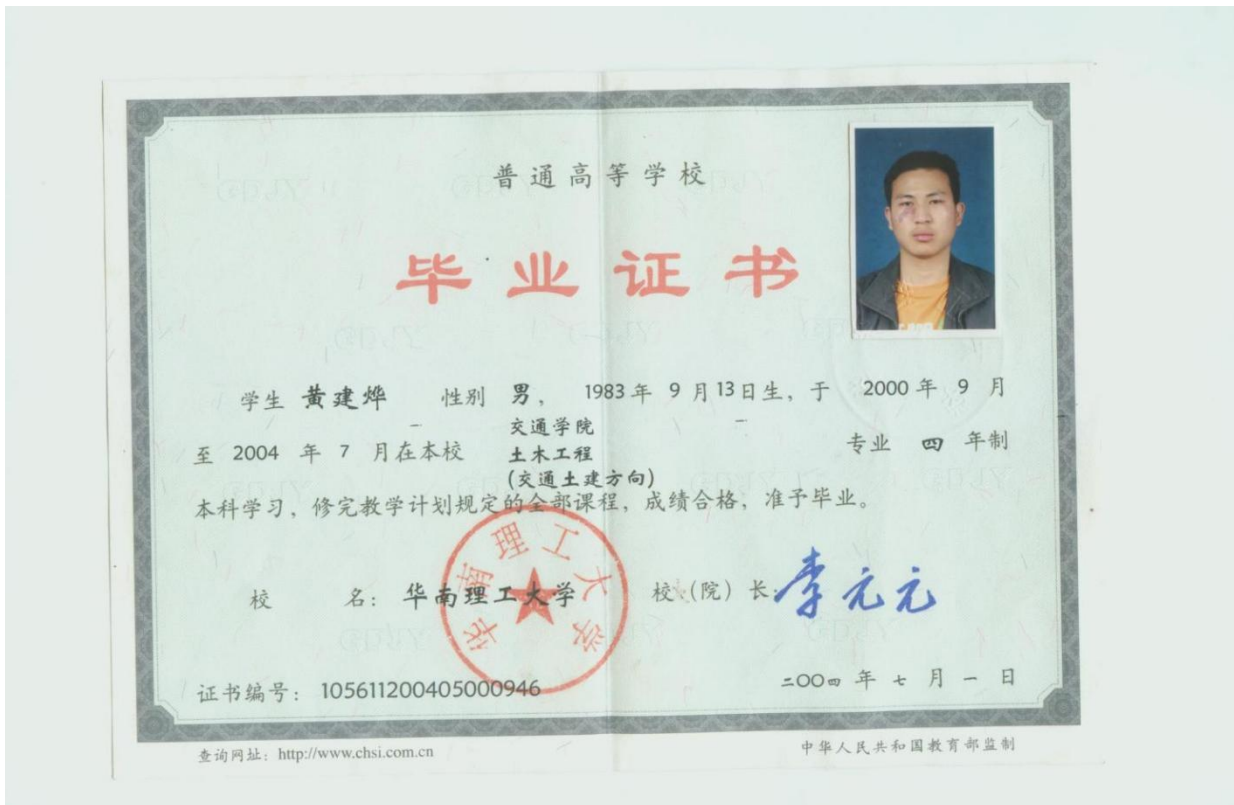 普通高等学校
毕业证书
学生 黄建烨 性别 男， 1983年 9月13日生，于 2000年 9 月
至 2004 年 7 月在本校 交通学院 土木工程 (交通土建方向) 专业 四 年制
本科学习，修完教学计划规定的全部课程，成绩合格，准予毕业。
校 名：华南理工大学 校（院）长：李元元
华南理工大学
证书编号：105611200405000946 二〇〇四 年 七 月 一 日
查询网址：http://www.chsi.com.cn 中华人民共和国教育部监制